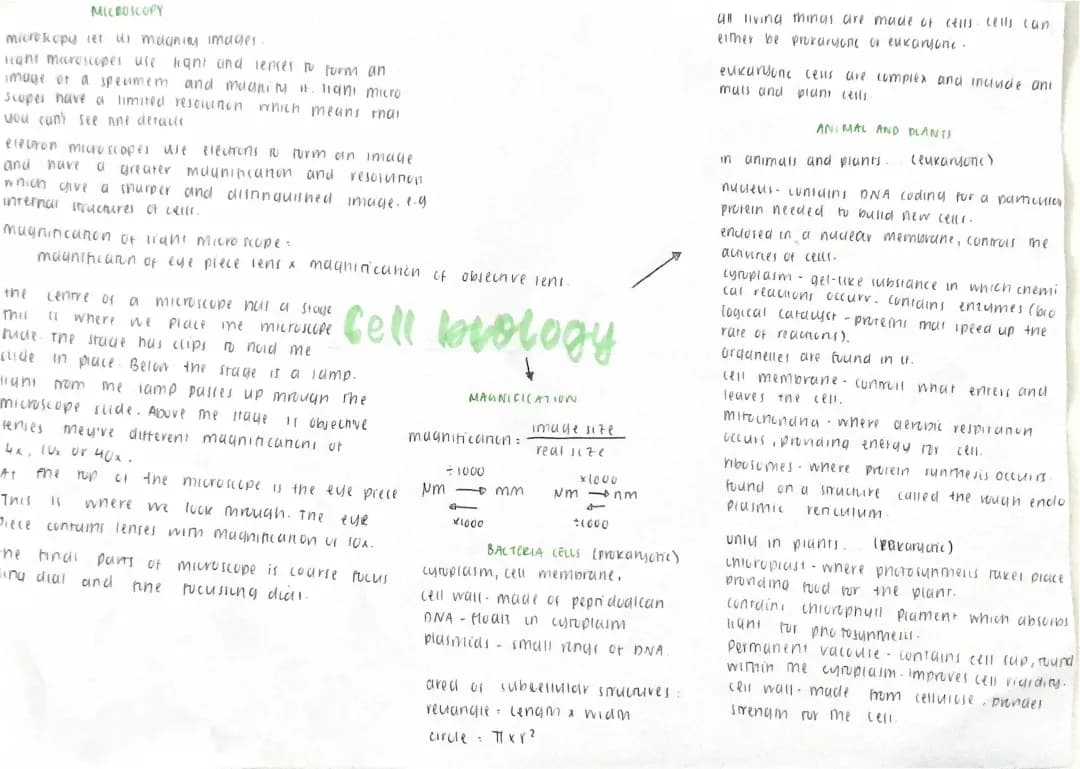 MICROSCOPY
microscopy let us magnify images.
light microscopes use light and lenses to form an
image of a specimem and magnify it. light micro
scopes have a limited resolution which means that
you can't see fine details
electron microscopes use electrons to form an image
and have a greater magnification and resolution
which give a sharper and distinguished image. e.g
internal structures of cells.
magnification of light microscope =
magnification of eye piece lens x magnification of objective lens.
the centre of a microscope has a stage
this is where we place the microscope
slide. The stage has clips to hold the
slide in place. Below the stage is a lamp.
light from the lamp passes up through the
microscope slide. Above the stage is objective
lenses they're different magnifications of
4x, 10x or 40x.
At the top of the microscope is the eye piece
This is where we look through. The eye
piece contains lenses with magnification of 10x.
the final parts of microscope is coarse focus
sing dial and fine focussing dial.
Cell biology
MAGNIFICATION
magnification = image size
real size
÷1000 x1000
μm → mm μm → nm
← ←
x1000 ÷1000
BACTERIA CELLS (prokaryotic)
cytoplasm, cell membrane,
cell wall - made of peptidoglcan
DNA - floats in cytoplasm
plasmids - small rings of DNA.
area of subcellular structures:
rectangle = length x width
circle = π x r²
all living things are made of cells. cells can
either be prokaryotic or eukaryotic.
eukaryotic cells are complex and include ani
mals and plant cells
ANIMAL AND PLANTS
in animals and plants. (eukaryotic)
nucleus - contains DNA coding for a particular
protein needed to build new cells.
enclosed in a nuclear membrane, controls the
activities of cells.
cytoplasm - gel-like substance in which chemi
cal reactions occurr. contains enzymes (bio
logical catalyst - proteins that speed up the
rate of reactions).
organelles are found in it.
cell membrane - controll what enters and
leaves the cell.
mitochondria - where aerobic respiration
occurs, providing energy for cell.
ribosomes - where protein synthesis occurrs.
found on a structure called the rough endo
plasmic reticulum.
only in plants.
chloroplast - where photosynthesis takes place
providing food for the plant.
contains chlorophyll pigment which absorbs
light for photosynthesis.
permanent vacoule - contains cell sap, found
within the cytoplasm. improves cell rigidity.
cell wall - made from cellulose, provides
strength for the cell.